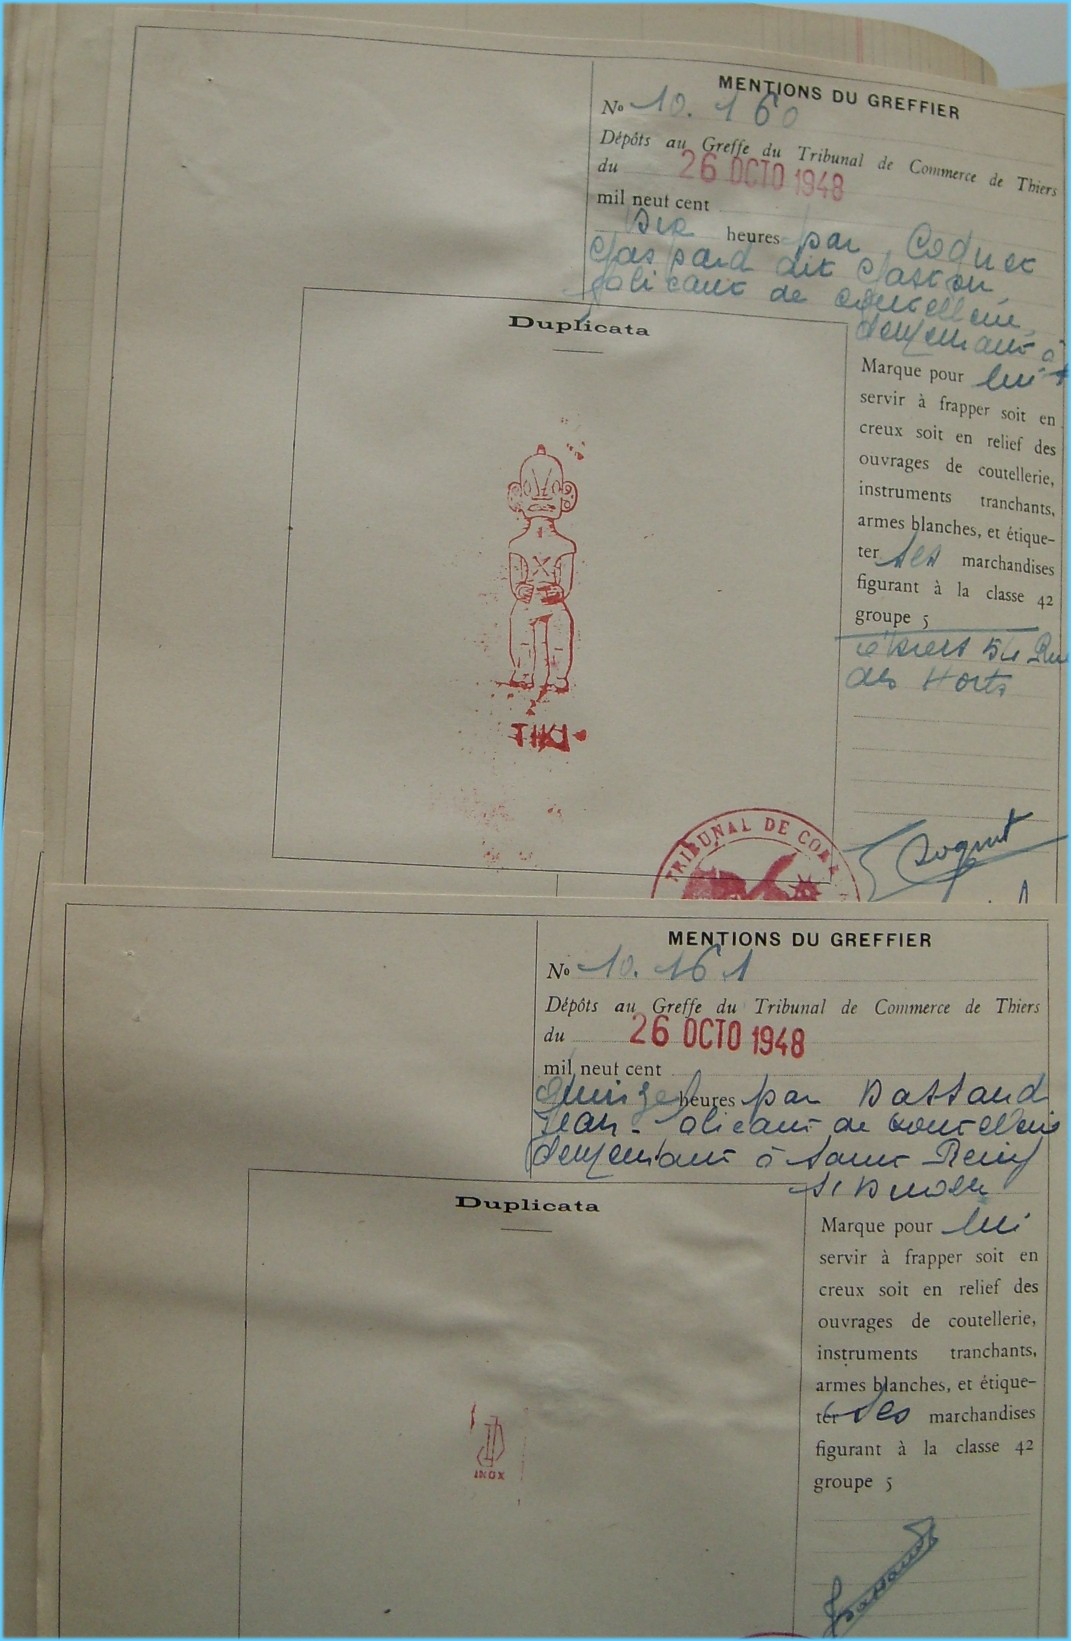 MENTIONS DU GREFFIER
No 10.160
Dépôts au Greffe du Tribunal de Commerce de Thiers
du 26 OCTO 1948
mil neuf cent
Dix heures par Coquet
Gaspard dit Gaston
fabricant de coutellerie
demeurant à
Duplicata
Marque pour lui
servir à frapper soit en
creux soit en relief des
ouvrages de coutellerie,
instruments tranchants,
armes blanches, et étique-
ter ses marchandises
figurant à la classe 42
groupe 5
Thiers 54 Rue
des Horts
TIKI
TRIBUNAL DE COM
Coquet
MENTIONS DU GREFFIER
No 10.161
Dépôts au Greffe du Tribunal de Commerce de Thiers
du 26 OCTO 1948
mil neuf cent
Quinze heures par Dassaud
Jean fabricant de coutellerie
demeurant à Saint Remy
s/ Durolle
Duplicata
Marque pour lui
servir à frapper soit en
creux soit en relief des
ouvrages de coutellerie,
instruments tranchants,
armes blanches, et étique-
ter ses marchandises
figurant à la classe 42
groupe 5
JD
INOX
Dassaud